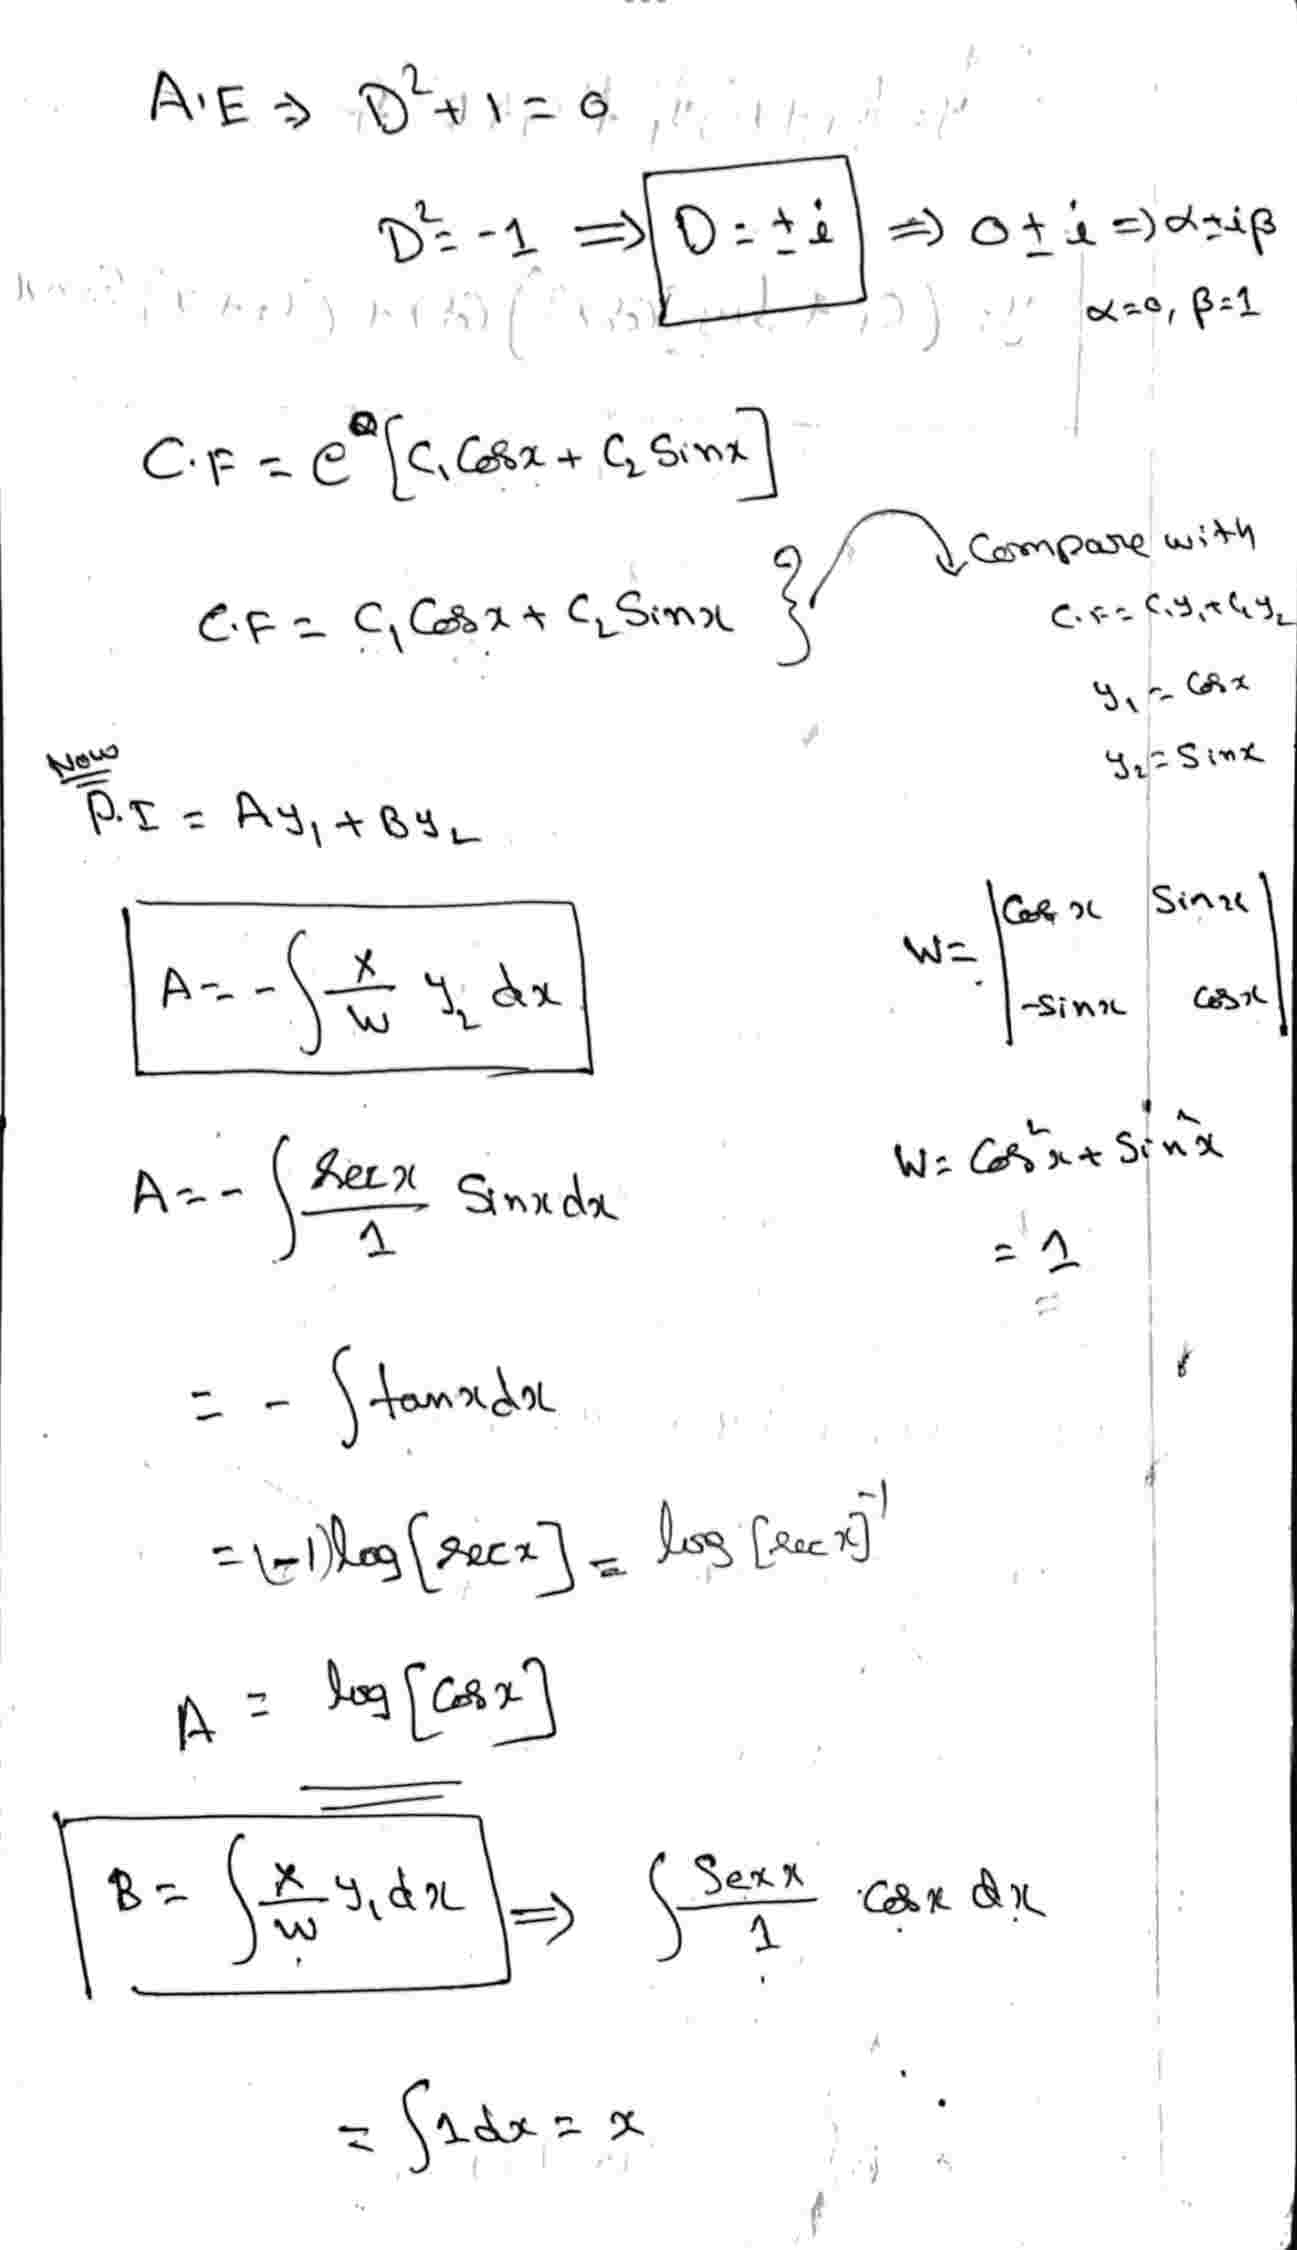 A.E ⇒ D²+1 = 0
D² = -1 ⇒ D = ±i ⇒ 0 ± i ⇒ α±iβ
α=0, β=1
C.F = e⁰[C₁ Cosx + C₂ Sinx]
C.F = C₁ Cosx + C₂ Sinx }
Compare with
C.F = C₁y₁ + C₂y₂
y₁ = Cosx
y₂ = Sinx
Now
P.I = Ay₁ + By₂
A = -∫ X/W y₂ dx
W = | Cosx Sinx |
| -Sinx Cosx |
A = -∫ Secx/1 Sinx dx
W = Cos²x + Sin²x
= 1
= -∫ tanx dx
= (-1) log[secx] = log[secx]⁻¹
A = log[Cosx]
B = ∫ X/W y₁ dx ⇒ ∫ Sexx/1 cosx dx
= ∫ 1 dx = x